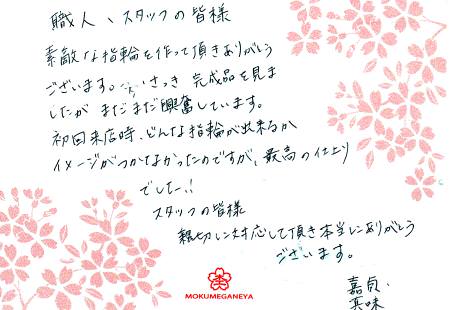 職人、スタッフの皆様
素敵な指輪を作って頂きありがとう
ございます。さっき完成品を見ま
したが まだまだ興奮しています。
初回来店時、どんな指輪が出来るか
イメージがつかなかったのですが、最高の仕上り
でしたー!!
スタッフの皆様
親切に対応して頂き本当にありがとう
ございます。
MOKUMEGANEYA